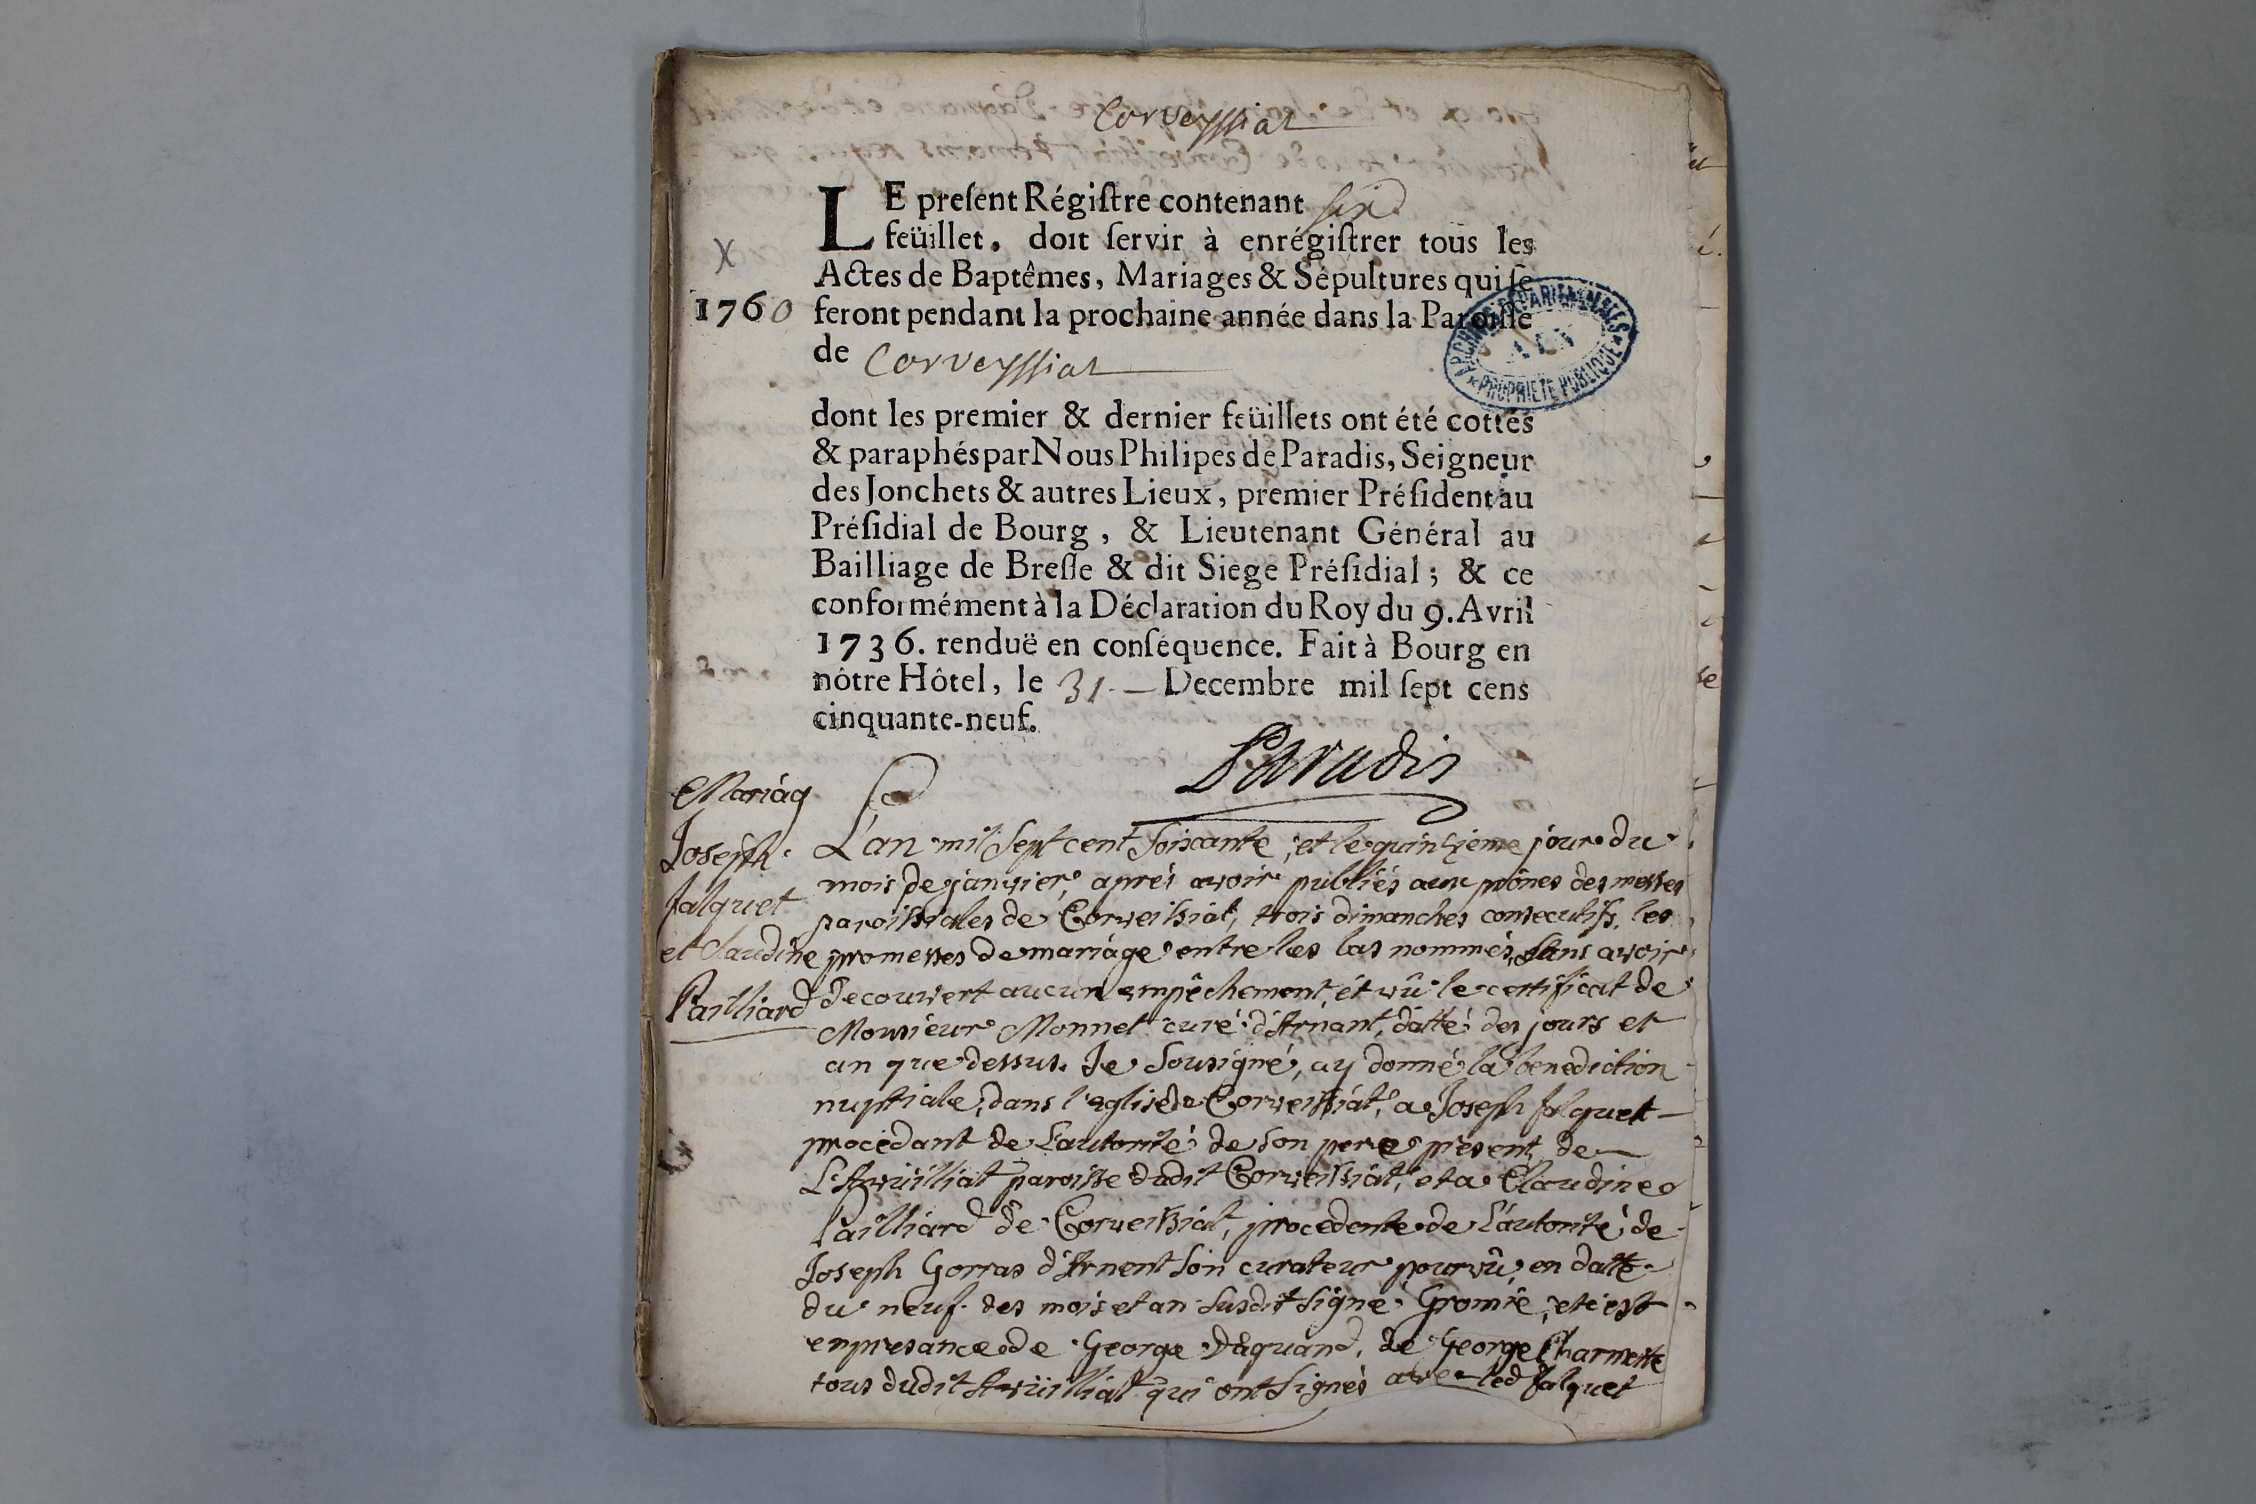 Corveyssiat
LE preſent Régiſtre contenant six
feüillet. doit ſervir à enrégiſtrer tous les
Actes de Baptêmes, Mariages & Sépultures qui ſe
1760 feront pendant la prochaine année dans la Paroiſſe
de Corveyssiat
ARCHIVES DÉPARTEMENTALES
AIN
PROPRIÉTÉ PUBLIQUE
dont les premier & dernier feüillets ont été cottés
& paraphés par Nous Philipes de Paradis, Seigneur
des Jonchets & autres Lieux, premier Préſident au
Préſidial de Bourg, & Lieutenant Général au
Bailliage de Breſſe & dit Siege Préſidial; & ce
conformément à la Déclaration du Roy du 9. Avril
1736. renduë en conſéquence. Fait à Bourg en
nôtre Hôtel, le 31 Decembre mil ſept cens
cinquante-neuf.
Paradis
Mariag
Joseph
falquet
et Claudine
Pailliard
L'an mil Sept cent Soixante, et le quinzieme jour du
mois de janvier, aprés avoir publiés aux prônes des messes
paroissiales de Corveissiat, trois dimanches consecutifs, les
promesses de mariage entre les bas nommés, Sans avoir
decouvert aucun empêchement, et vû le certificat de
Monsieur Monnet curé d'Arnant, datté des jours et
an que dessus. Je Sousigné, ay donné la benediction
nuptiale, dans l'eglise de Corveissiat, a Joseph falquet
procedant de L'autorité de Son pere present, de
L'Arvüilliat paroisse dudit Corveissiat, et a Claudine
Pailliard de Corveissiat, procedente de L'autorité de
Joseph Gorras d'Arnent Son curateur pourvû, en datte
du neuf des mois et an Susdit Signé Gromié, et c'est
en presance de George Daquand, de George Charmette
tous dudit Arvüilliat qui ont Signés avec led falquet